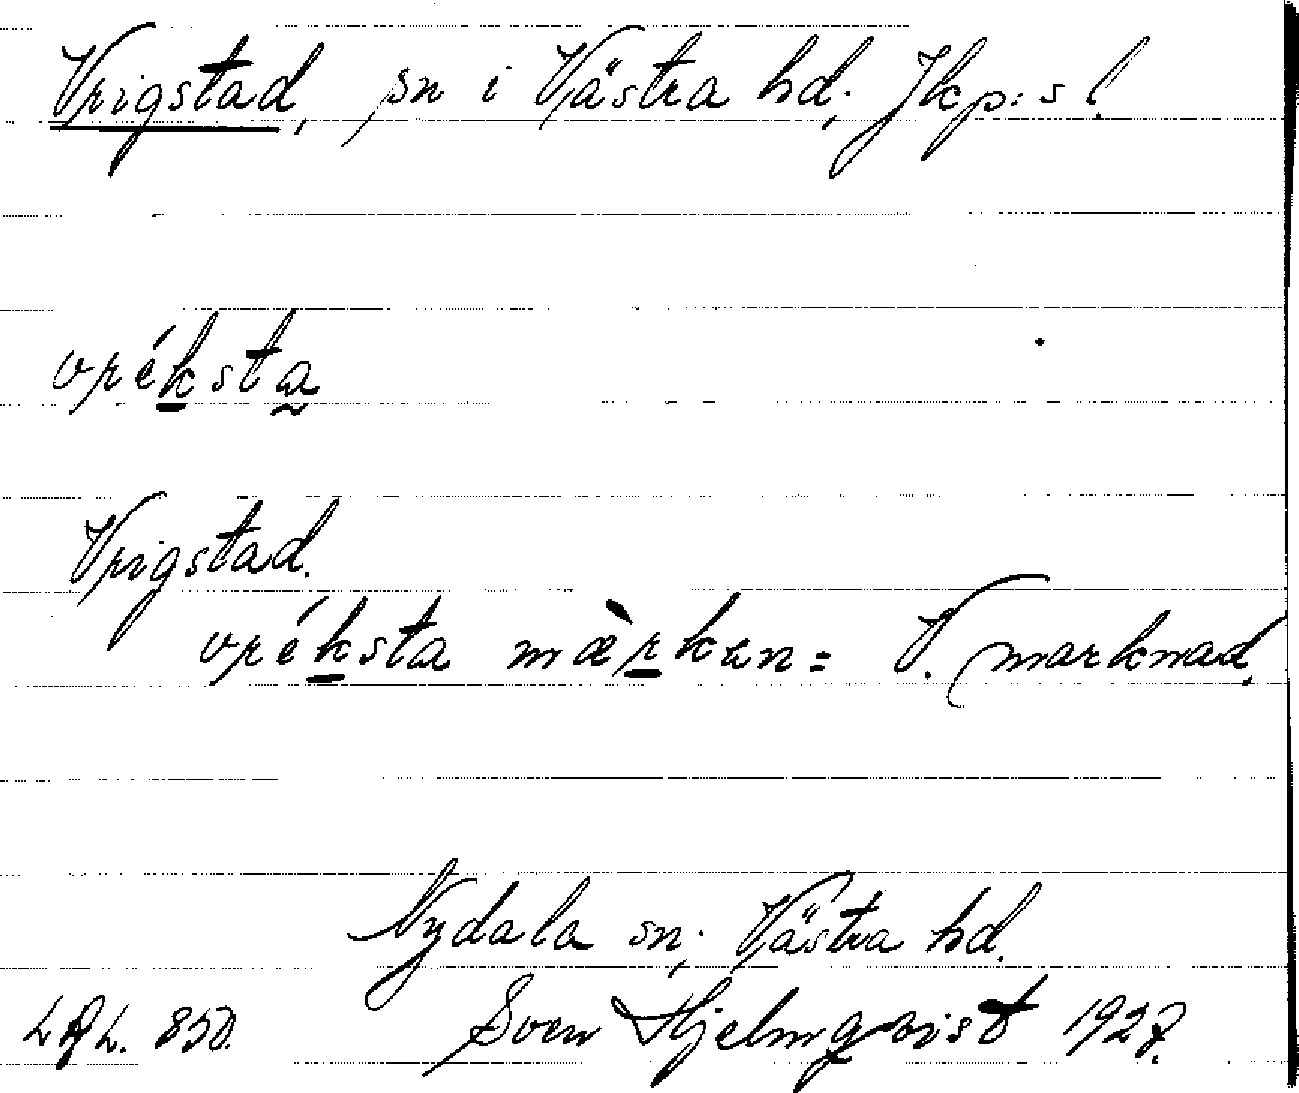 Vrigstad, sn i Västra hd; Jkp:s l.
vréksta
Vrigstad.
vréksta mærkan = V. marknad.
Nydala sn; Västra hd.
850. Sven Hjelmqvist 1927.